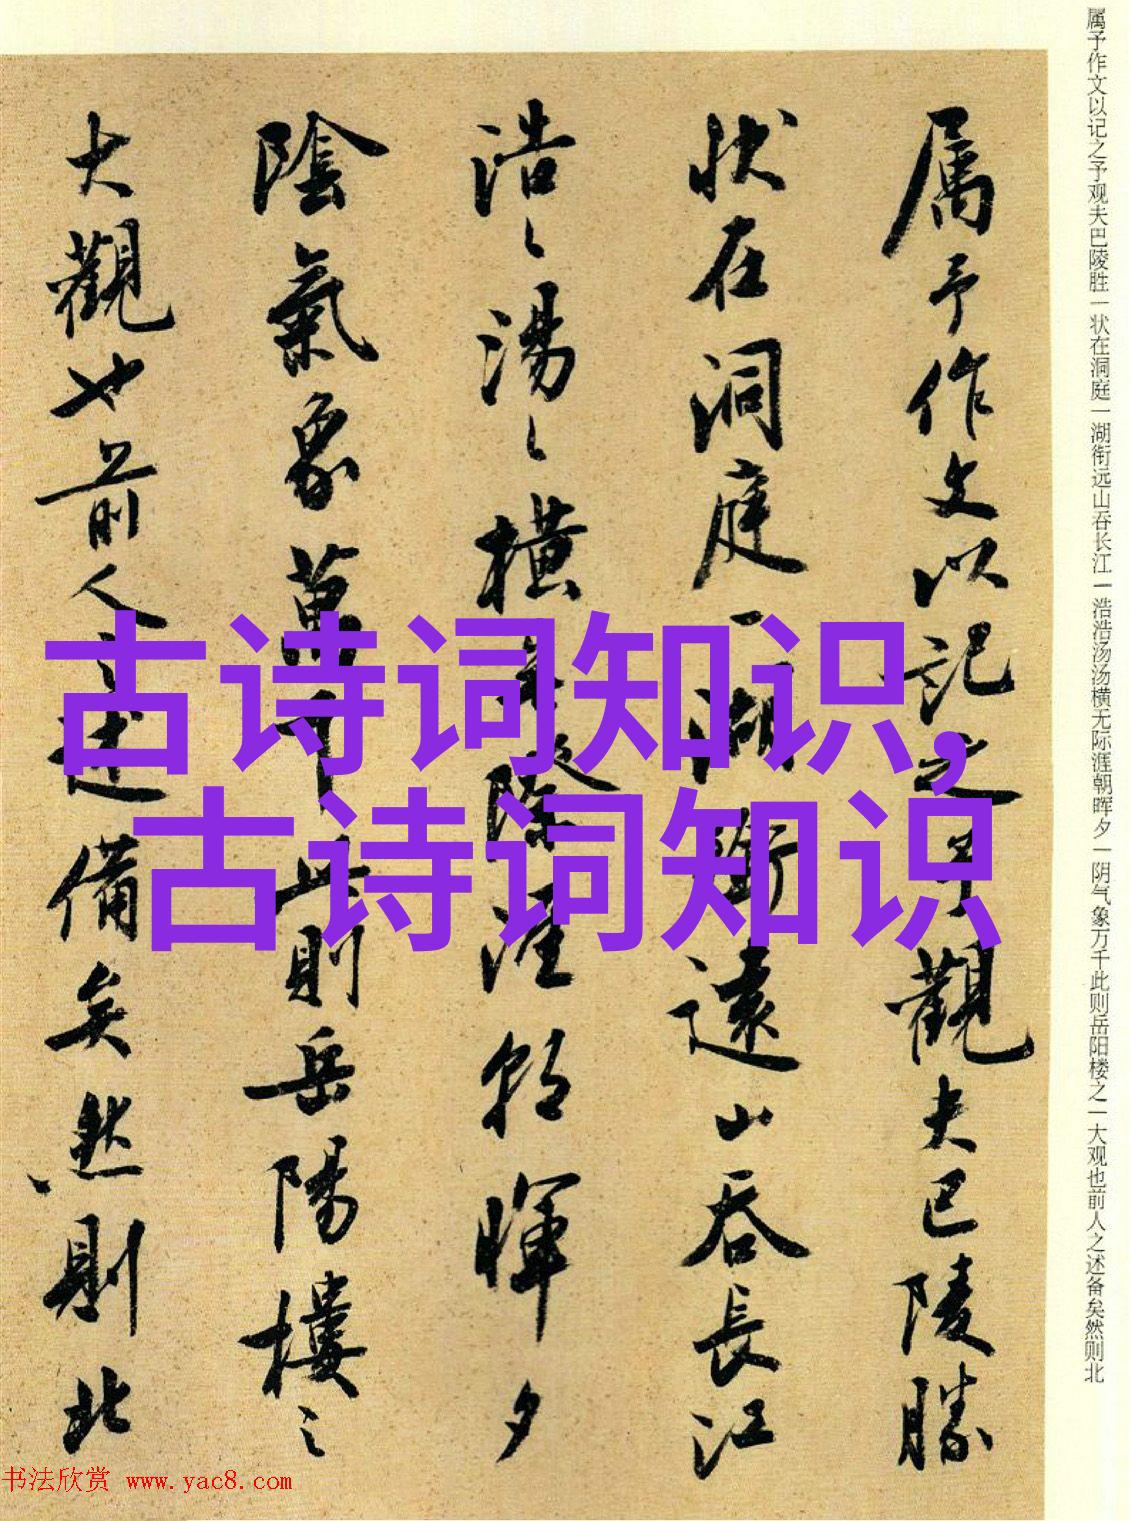 属予作文以记之予观夫巴陵胜一状在洞庭一湖衔远山吞长江一浩浩汤汤横无际涯朝晖夕一阴气象万千此则岳阳楼之一大观也前人之述备矣然则北
属予作文以記之予觀夫巴陵勝
状在洞庭一湖銜遠山吞長江
浩々湯々橫無際涯朝暉夕
陰氣象萬千此則岳陽樓之
大觀也前人之述備矣然則北
古诗词知识,
古诗词知识
书法欣赏 www.yac8.com